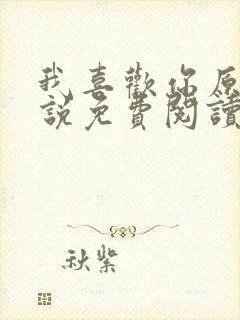 我喜歡你原
說免費閱讀
秋紫